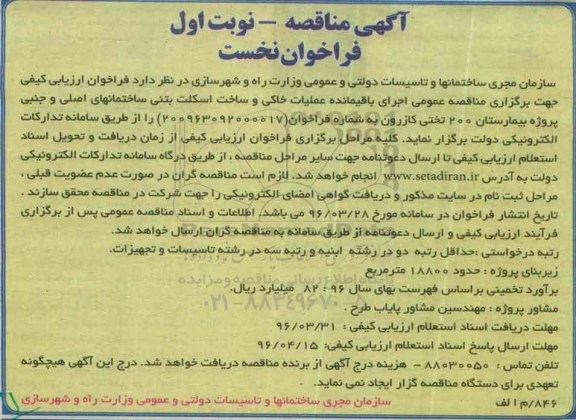 آگهی مناقصه - نوبت اول
فراخوان نخست
سازمان مجری ساختمانها و تاسیسات دولتی و عمومی وزارت راه و شهرسازی در نظر دارد فراخوان ارزیابی کیفی
جهت برگزاری مناقصه عمومی اجرای باقیمانده عملیات خاکی و ساخت اسکلت بتنی ساختمانهای اصلی و جنبی
پروژه بیمارستان ۲۰۰ تختی کازرون به شماره فراخوان(۲۰۰۹۶۳۰۹۲۰۰۰۰۱۷) را از طریق سامانه تدارکات
الکترونیکی دولت برگزار نماید. کلیه مراحل برگزاری فراخوان ارزیابی کیفی از زمان دریافت و تحویل اسناد
استعلام ارزیابی کیفی تا ارسال دعوتنامه جهت سایر مراحل مناقصه ، از طریق درگاه سامانه تدارکات الکترونیکی
دولت به آدرس www.setadiran.ir انجام خواهد شد. لازم است مناقصه گران در صورت عدم عضویت قبلی ،
مراحل ثبت نام در سایت مذکور و دریافت گواهی امضای الکترونیکی را جهت شرکت در مناقصه محقق سازند .
تاریخ انتشار فراخوان در سامانه مورخ ۹۶/۰۳/۲۸ می باشد. اطلاعات و اسناد مناقصه عمومی پس از برگزاری
فرآیند ارزیابی کیفی و ارسال دعوتنامه از طریق سامانه به مناقصه گران ارسال خواهد شد.
رتبه درخواستی :حداقل رتبه دو در رشته ابنیه و رتبه سه در رشته تاسیسات و تجهیزات.
زیربنای پروژه : حدود ۱۸۸۰۰ مترمربع
برآورد تخمینی براساس فهرست بهای سال ۹۶ : ۸۲ میلیارد ریال.
مشاور پروژه : مهندسین مشاور پایاب طرح .
مهلت دریافت اسناد استعلام ارزیابی کیفی : ۹۶/۰۳/۳۱
مهلت ارسال پاسخ اسناد استعلام ارزیابی کیفی: ۹۶/۰۴/۱۵
تلفن تماس : ۸۸۰۳۰۰۵۰ - هزینه درج آگهی از برنده مناقصه دریافت خواهد شد. درج این آگهی هیچگونه
تعهدی برای دستگاه مناقصه گزار ایجاد نمی نماید.
۸۴۶/م الف
سازمان مجری ساختمانها و تاسیسات دولتی و عمومی وزارت راه و شهرسازی
پایگاه اطلاع رسانی مناقصه و مزایده
۰۲۱-۸۸۳۴۹۶۷۰-۵